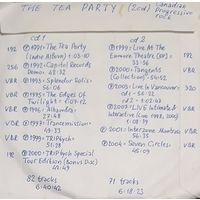 THE TEA PARTY (2cd) Canadian
progressive
rock
cd 1
192 1991: The Tea Party
(indie Album) 1:03:10
256 1992: Capitol Records
Demo: 42:32
VBR 1993: Splendor Solis:
56:06
VBR 1995: The Edges Of
Twilight:
VBR 1996: Alhambra:
27:48
VBR 1997: Transmission:
VBR 1999: TRIPtych:
51:28
192 2000: TRIPtych Special
Tour Edition (Bonus Disc)
82 tracks
6:40:42
cd 2
1999: Live At The
Enmore Theatre (EP): 192
2000: Tangents VBR
(Collection)
2003: Live In Vancouver:
cd 2 -
2007: LIVE Intimate &
Interactive (Live
2001: Interzone Mantras:
2004: Seven Circles:
45:09
71 tracks
6:18:23